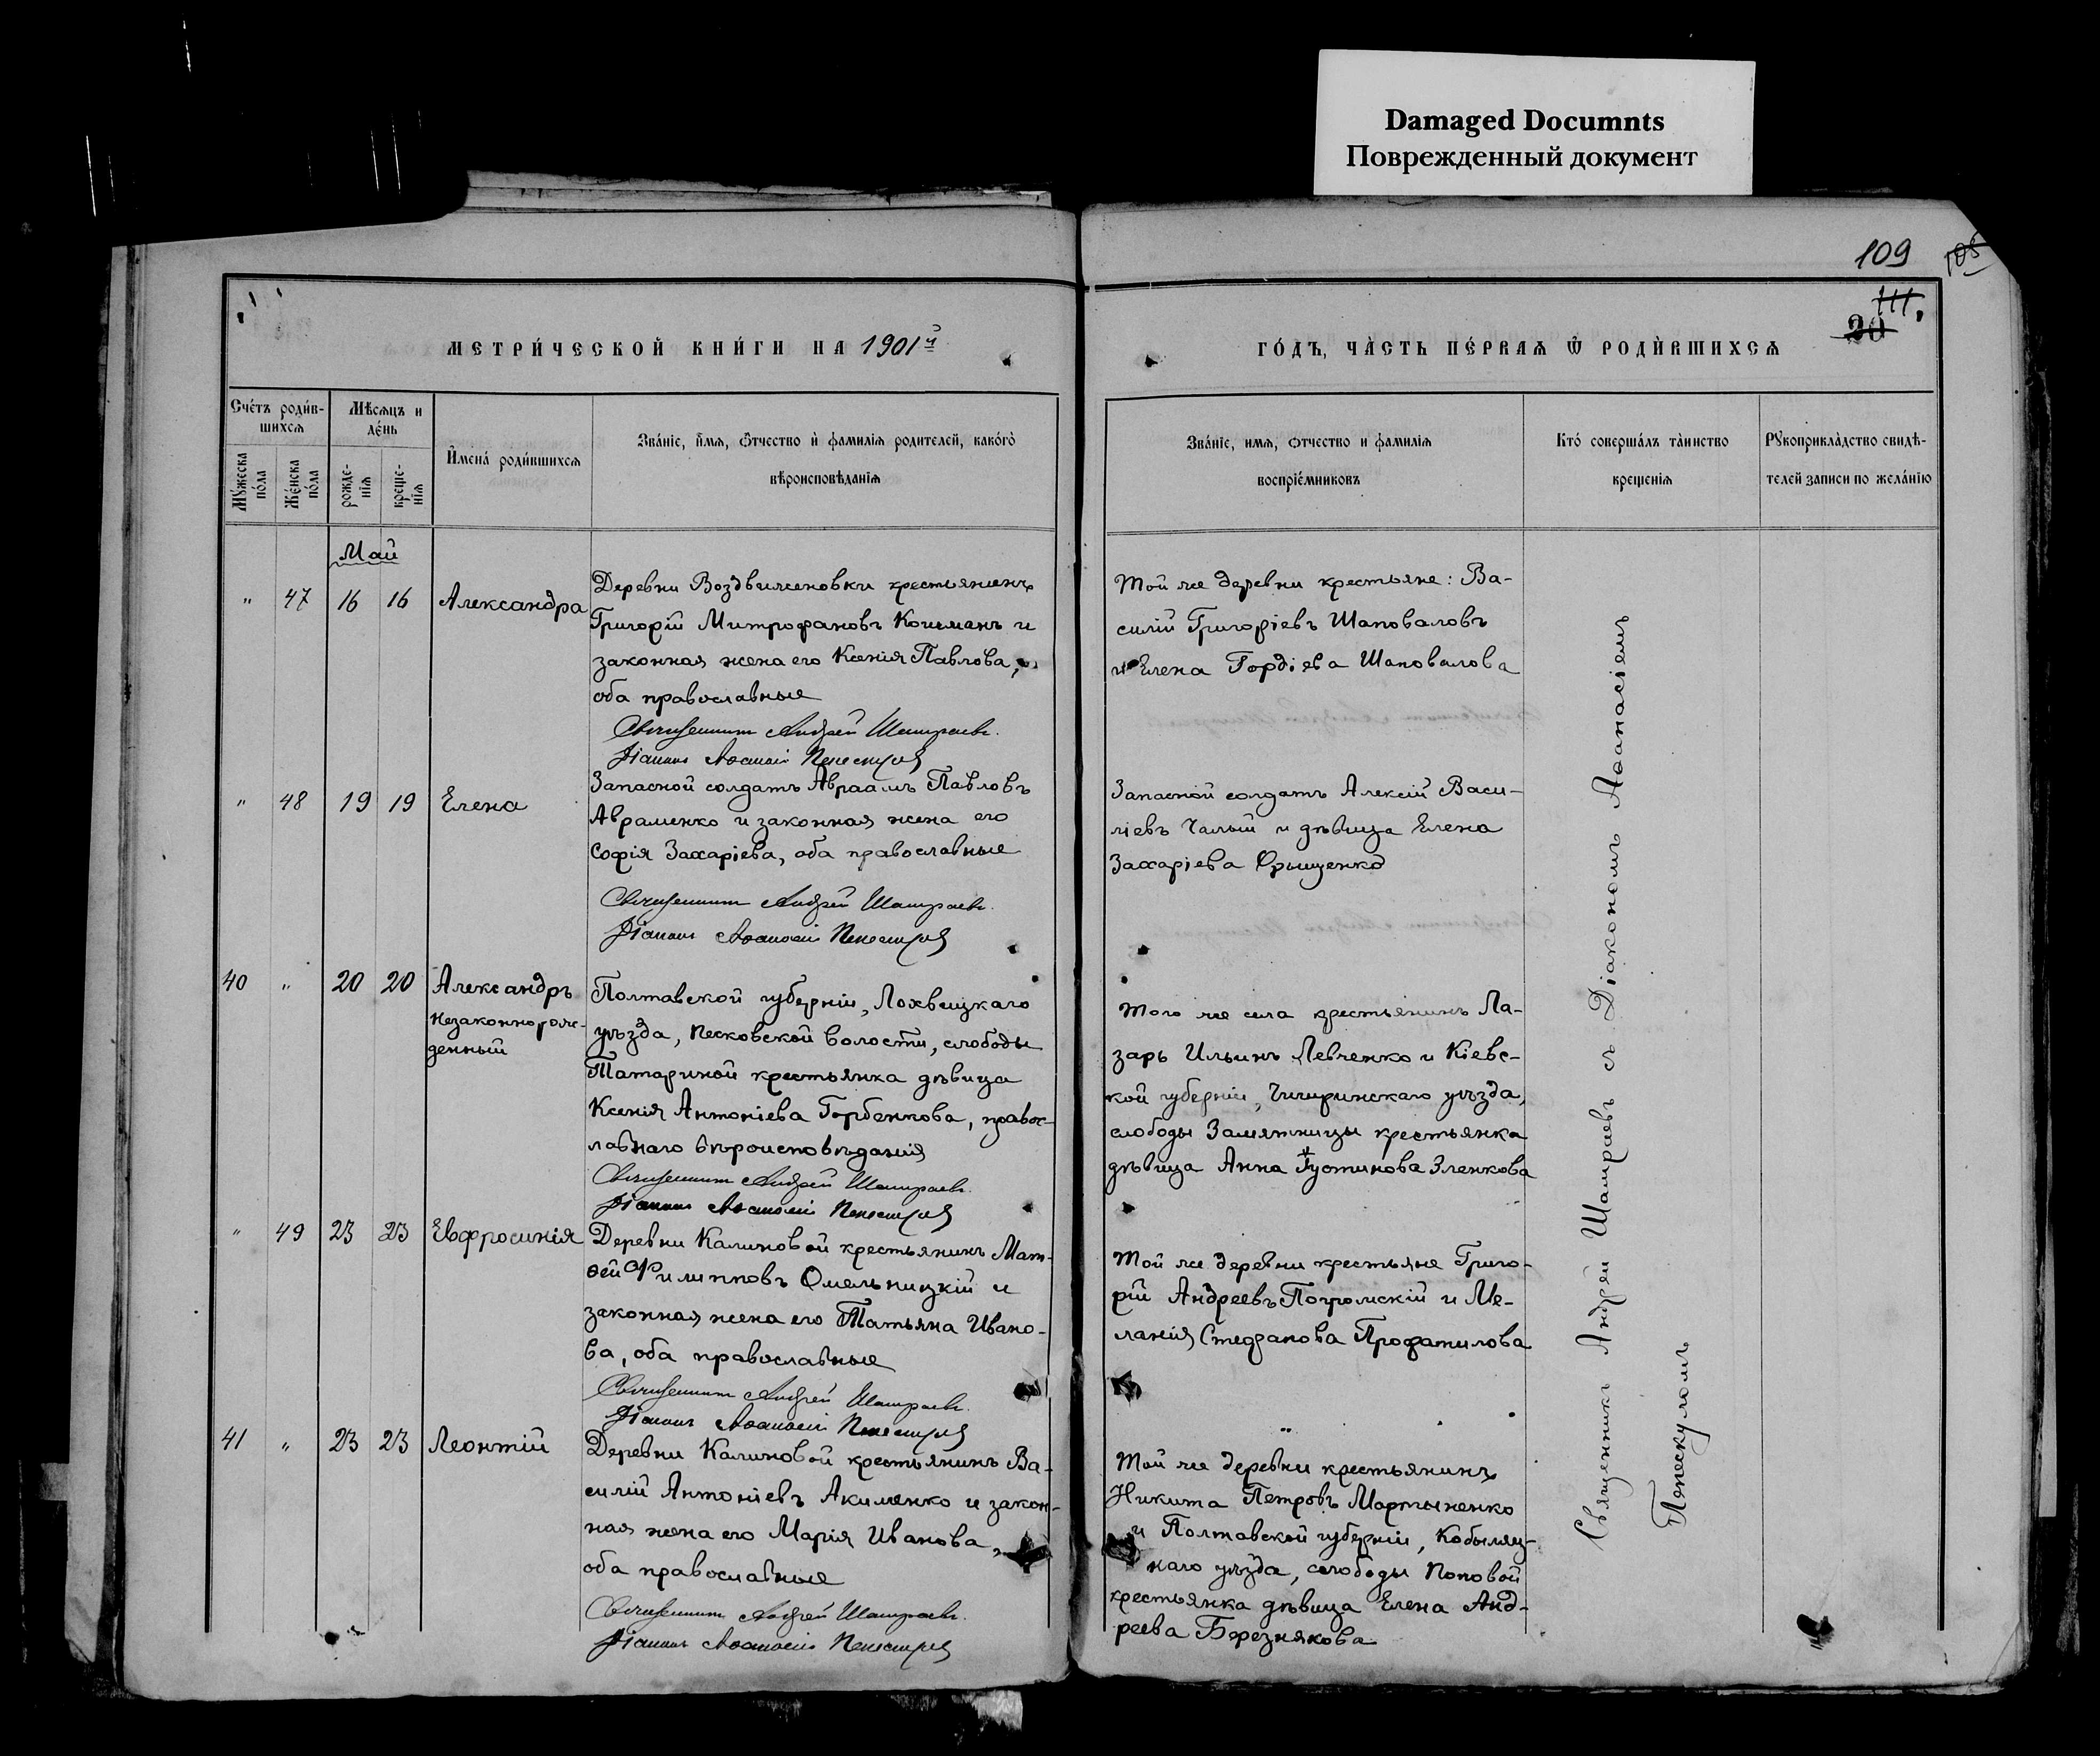 Damaged Documnts
Поврежденный документ
109
105
111.
20
МЕТРИ́ЧЕСКОЙ КНИ́ГИ НА 1901й
ГО́ДЪ, ЧА̀СТЬ ПЕ́РВАѦ Ѿ РОДЍВШИХСѦ
Сче́тъ роди́в-
шихсѧ
Мѣсѧцъ и
де́нь
Му́жеска
по́ла
Же́нска
по́ла
рожде-
нїѧ
креще-
нїѧ
И҆мена́ роди́вшихсѧ
Зва́нїе, и҆́мѧ, ѻ҆́тчество и҆ фамилїѧ родителей, како́гѡ
вѣроисповѣданїѧ
Зва́нїе, имѧ, ѻтчество и фамилїѧ
воспрїе́мниковъ
Кто́ соверша́лъ та̀инство
крещенїѧ
Рꙋкоприкла̀дство свидѣ-
телей записи по жела́нїю
Май
" 47 16 16 Александра
Деревни Воздвиженовки крестьянинъ
Григорій Митрофановъ Коцманъ и
законная жена его Ксенія Павлова,
оба православные
Священникъ Андрей Шатраевъ.
Діаконъ Аѳанасій Пепескулъ
Той же деревни крестьяне: Ва-
силій Григоріевъ Шаповаловъ
и Елена Гордіева Шаповалова
" 48 19 19 Елена
Запасной солдатъ Авраамъ Павловъ
Авраменко и законная жена его
Софія Захаріева, оба православные
Священникъ Андрей Шатраевъ.
Діаконъ Аѳанасій Пепескулъ
Запасной солдатъ Алексій Васи-
ліевъ Чалый и дѣвица Елена
Захаріева Грищенко
40 " 20 20 Александръ
незаконнорож-
денный
Полтавской губерніи, Лохвицкаго
уѣзда, Песковской волости, слободы
Татариной крестьянка дѣвица
Ксенія Антоніева Горбенкова, правос-
лавнаго вѣроисповѣданія
Священникъ Андрей Шатраевъ.
Діаконъ Аѳанасій Пепескулъ
Того же села крестьянинъ Ла-
зарь Ильинъ Левченко и Кіевс-
кой губерніи, Чигиринскаго уѣзда,
слободы Замятницы крестьянка
дѣвица Анна Іустинова Зленкова
" 49 23 23 Евфросинія
Деревни Калиновой крестьянинъ Мат-
ѳей Филипповъ Омельницкій и
законная жена его Татьяна Ивано-
ва, оба православные
Священникъ Андрей Шатраевъ.
Діаконъ Аѳанасій Пепескулъ
Той же деревни крестьяне Григо-
рій Андреевъ Погромскій и Ме-
ланія Стефанова Профатилова
41 " 23 23 Леонтій
Деревни Калиновой крестьянинъ Ва-
силій Антоніевъ Акименко и закон-
ная жена его Марія Иванова,
оба православные
Священникъ Андрей Шатраевъ.
Діаконъ Аѳанасій Пепескулъ
Той же деревни крестьянинъ
Никита Петровъ Мартыненко
и Полтавской губерніи, Кобыляц-
каго уѣзда, слободы Поповой
крестьянка дѣвица Елена Анд-
реева Березнякова
Священникъ Андрей Шатраевъ съ Діакономъ Аѳанасіемъ
Пепескуломъ